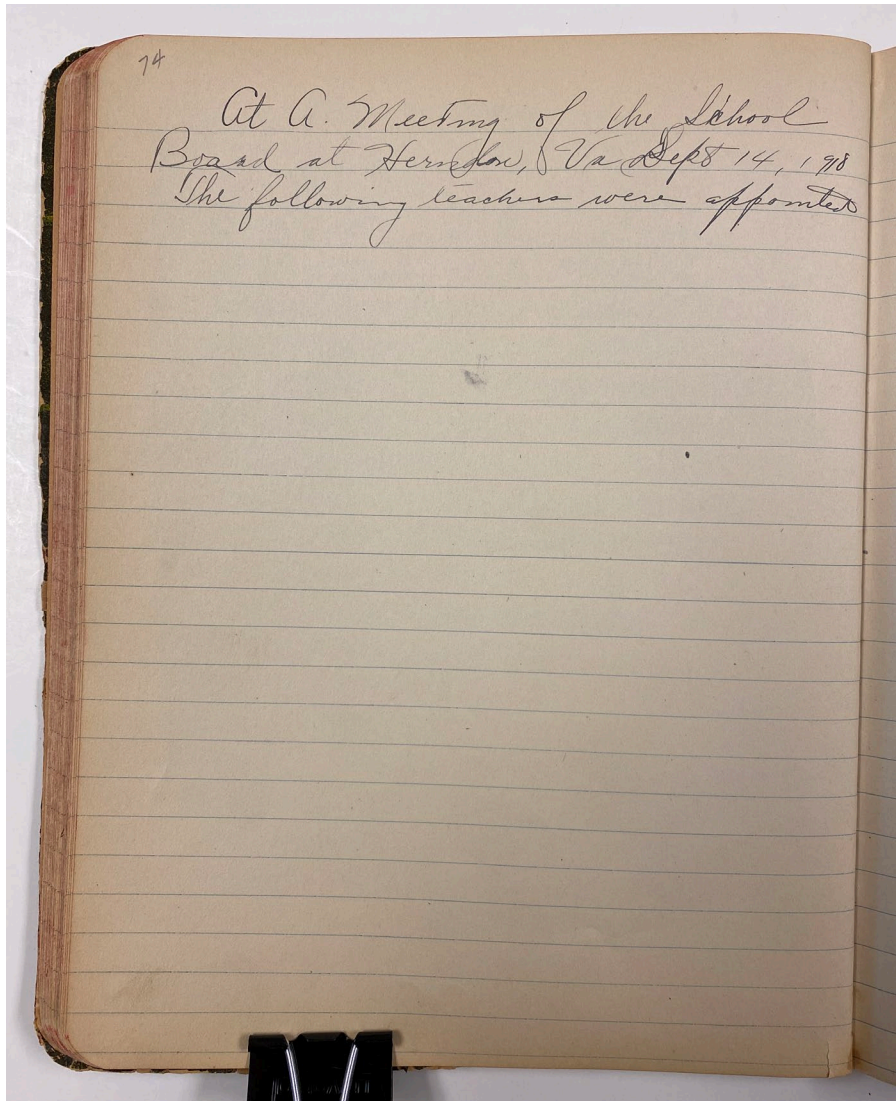 74
At A. Meeting of the School
Board at Herndon, Va Sept 14, 1918
The following teachers were appointed